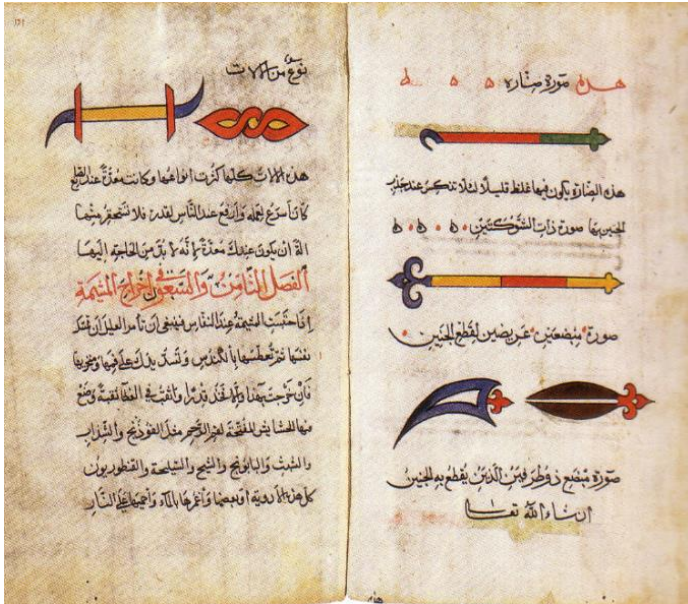 هذه صورة صنارة
هذه الصنارة يكون فيها غلظ قليلا لئلا تنكسر عند جذب
الجنين بها صورة ذات الشوكتين
صورة مبضعين عريضين لقطع الجنين
صورة مبضع ذو طرفين الذين يقطع به الجنين
ان شاء الله تعالى
نوع من الالات
هذه الالات كلما كثرت انواعها وكانت معدة عند
كان اسرع لعمله وارفع عند الناس لقدره فلا تستحقر منها
الة ان يكون عندك معدة لانه لا بد من الحاجة اليها
الفصل الثامن والسبعون في اخراج المشيمة
اذا احتبست المشيمة عند النفاس فينبغي ان تامر العليل ان تمسك
نفسها ثم تعطسها بالكندس وتسد يدك على فمها ومنخريها
فان خرجت بهذا والا فخذ قدرا واثقب في الغطا ثقبة وضع
فيها الحشايش المفتحة لفم الرحم مثل الفوذنج والسذاب
والشبث والبابونج والشيح والسليخة والقنطوريون
كل هذه الادوية او بعضها واغمرها بالماء على النار